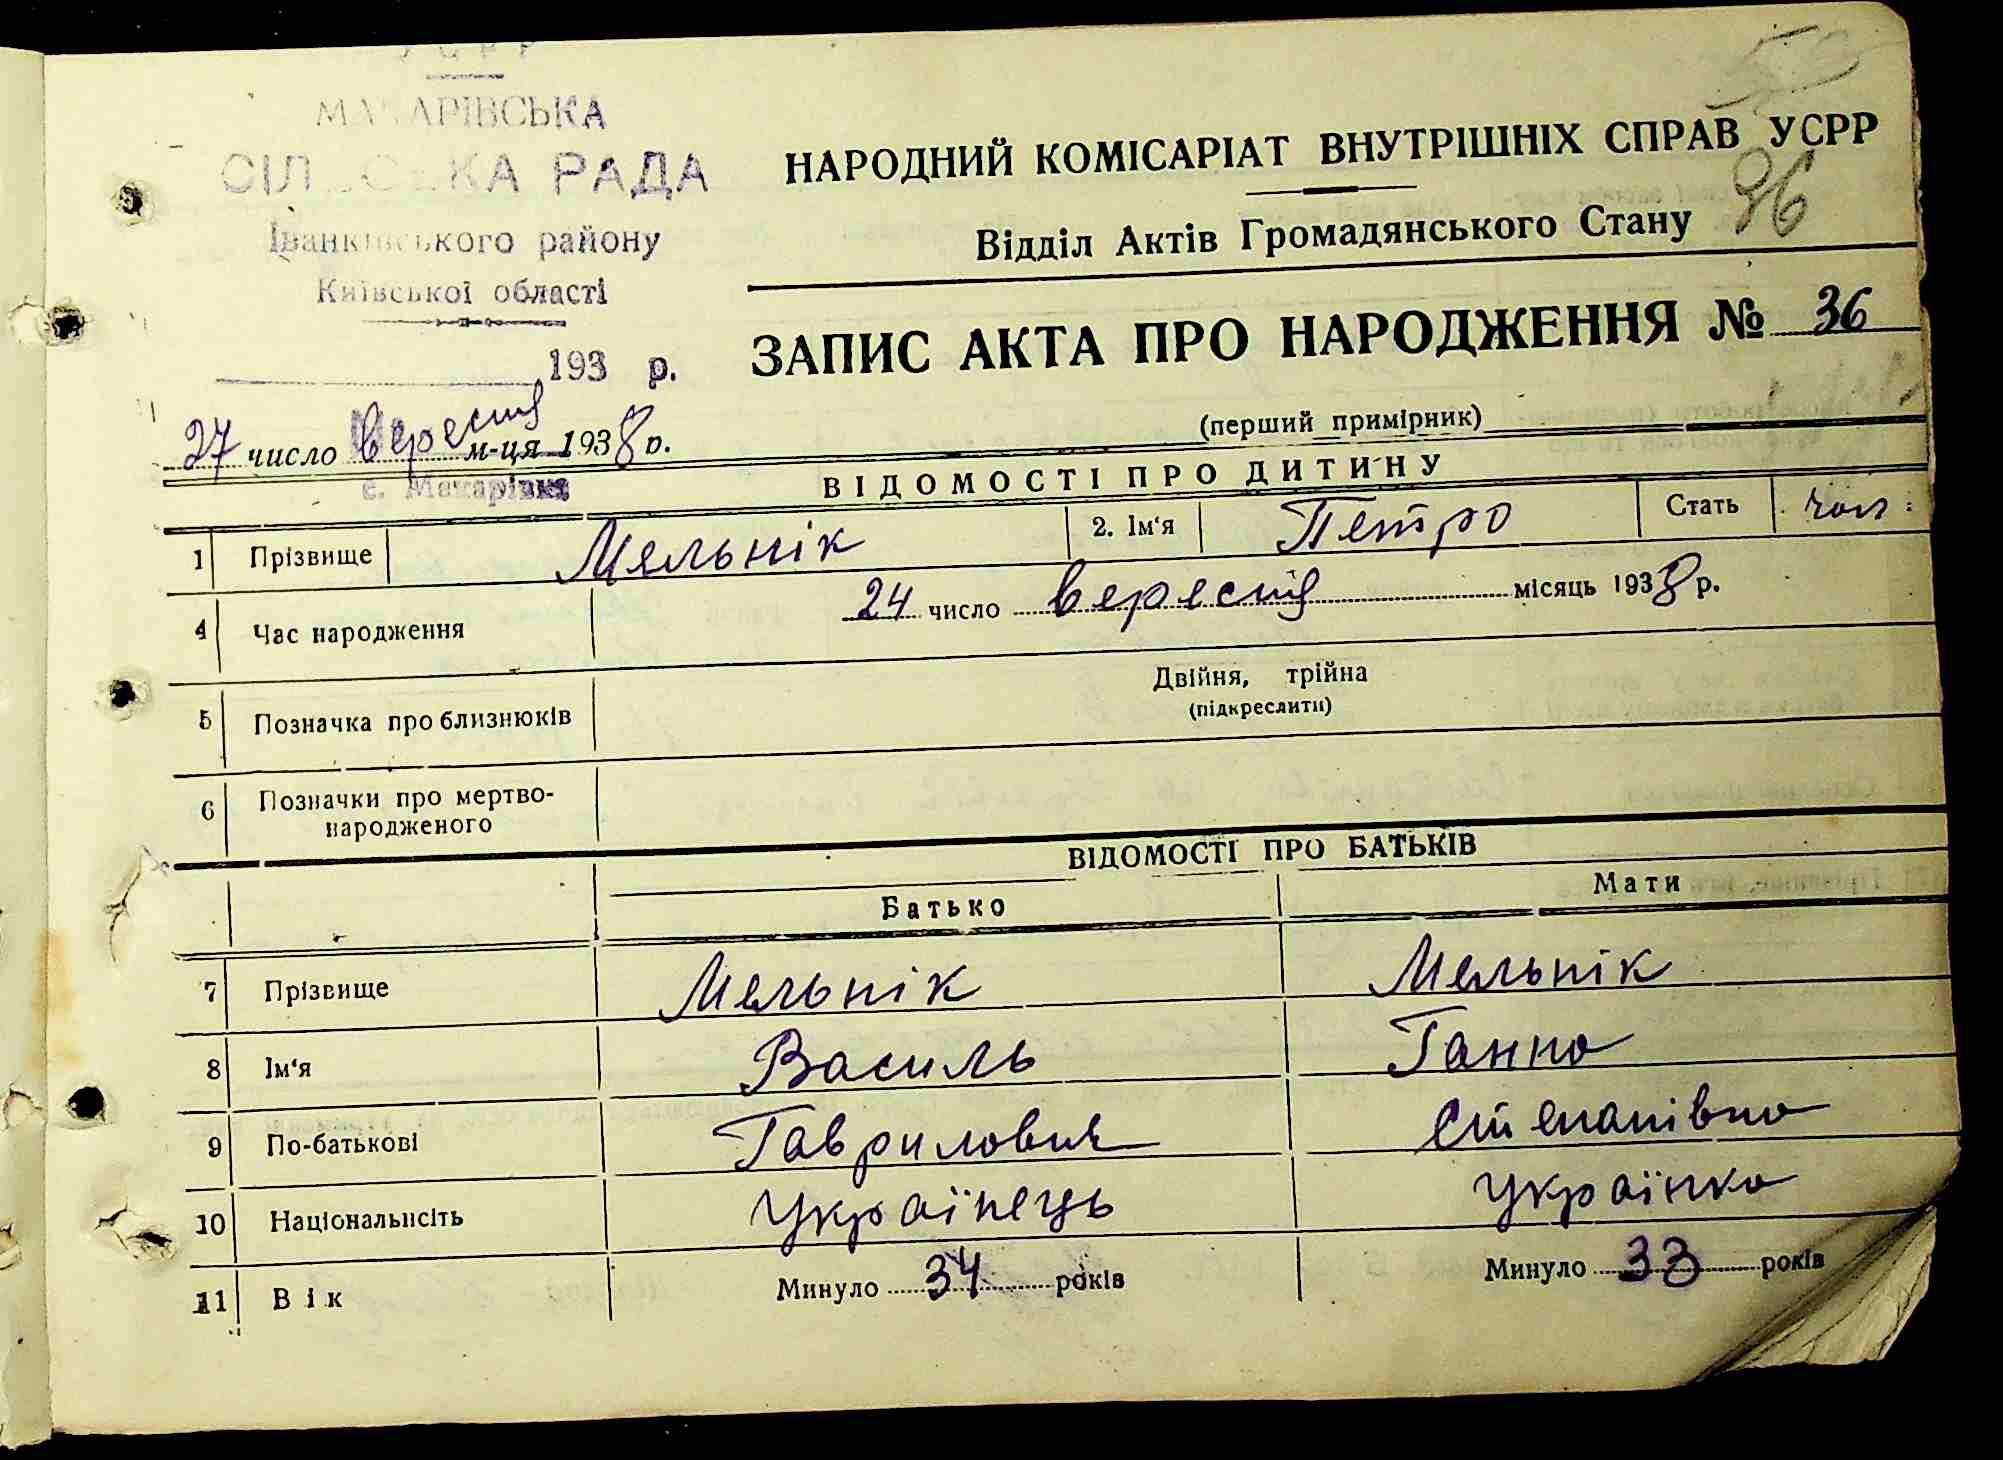 УСРР
МАКАРІВСЬКА
СІЛЬСЬКА РАДА
Іванківського району
Київської області
193 р.
27 число вересня м-ця 1938 р.
с. Макарівка
96
НАРОДНИЙ КОМІСАРІАТ ВНУТРІШНІХ СПРАВ УСРР
Відділ Актів Громадянського Стану
ЗАПИС АКТА ПРО НАРОДЖЕННЯ № 36
(перший примірник)
ВІДОМОСТІ ПРО ДИТИНУ
1 Прізвище Мельнік 2. Ім‘я Петро Стать чол:
4 Час народження 24 число вересня місяць 1938 р.
5 Позначка про близнюків Двійня, трійна
(підкреслити)
6 Позначки про мертво-
народженого
ВІДОМОСТІ ПРО БАТЬКІВ
Батько Мати
7 Прізвище Мельнік Мельнік
8 Ім‘я Василь Ганна
9 По-батькові Гаврилович Степанівна
10 Національність Українець Українка
11 Вік Минуло 34 років Минуло 33 років